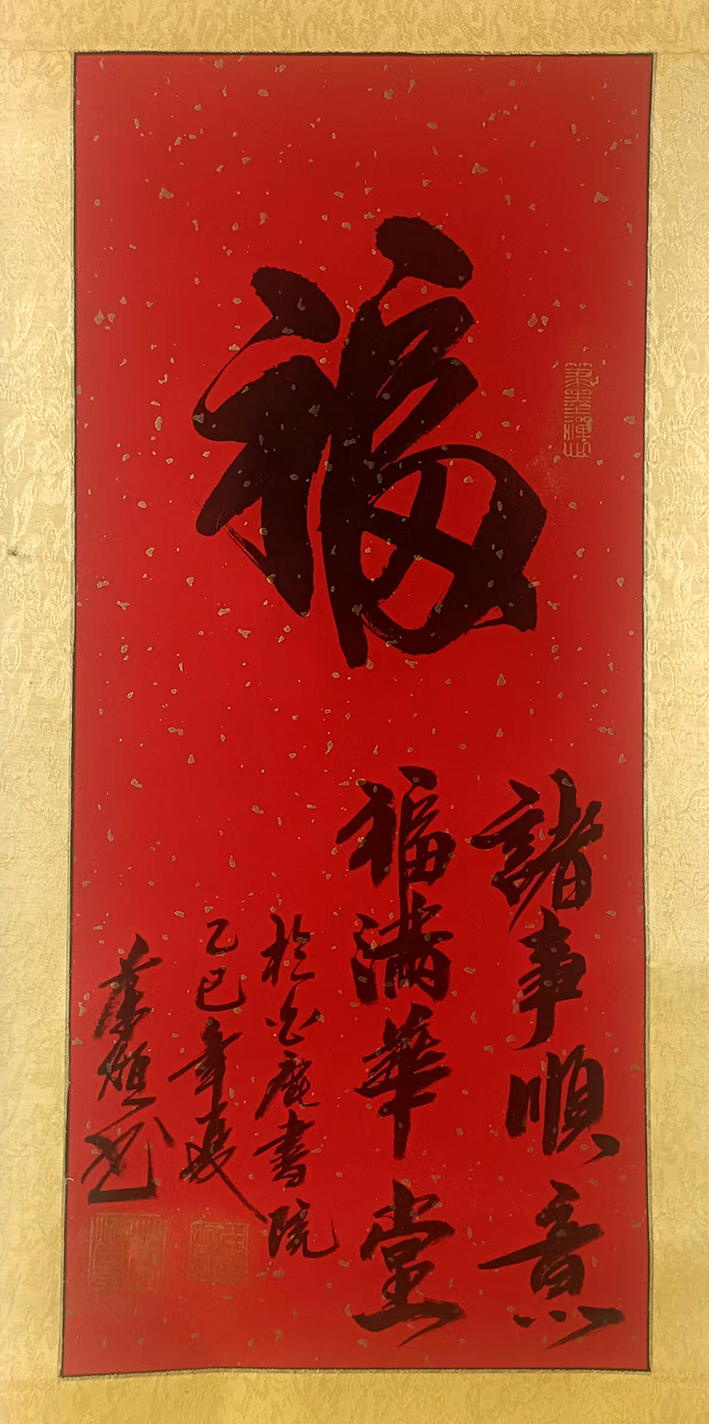 福
諸事順意
福满華堂
於白鹿書院
乙巳年夏
書